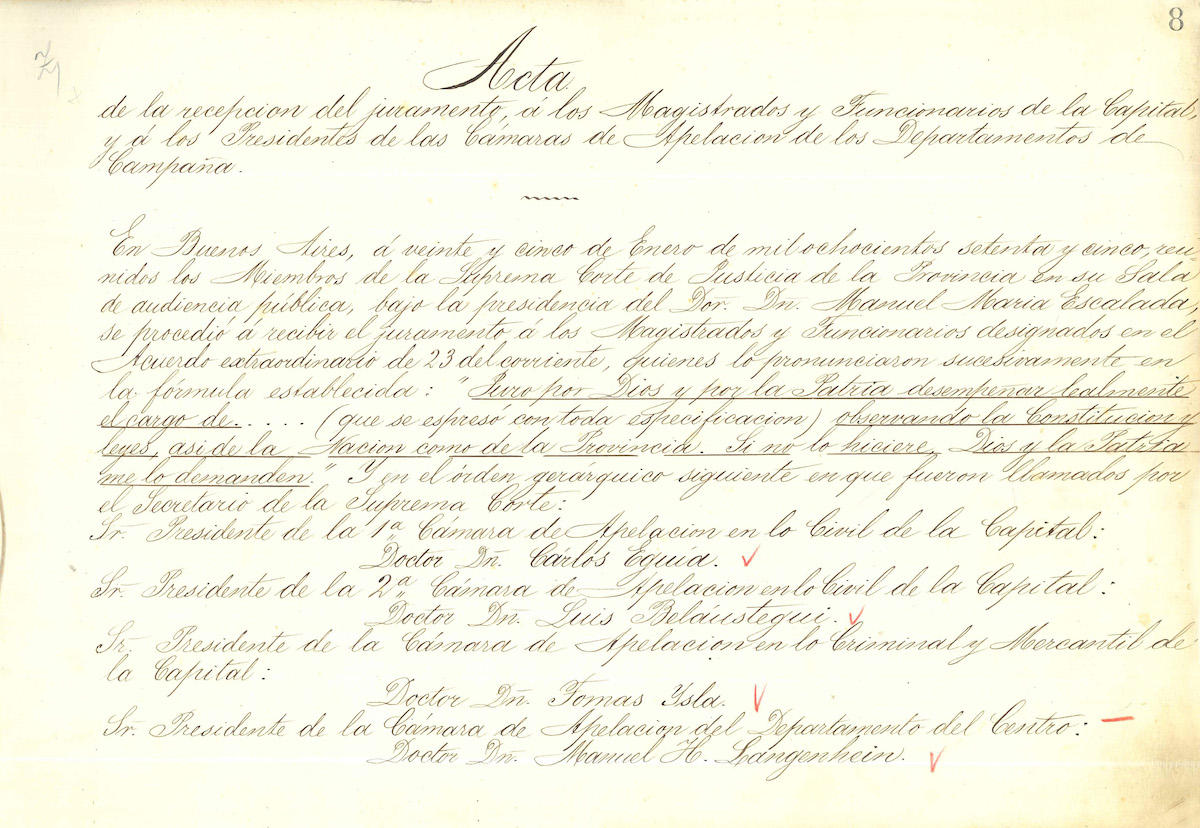 8
Acta
de la recepcion del juramento, á los Magistrados y Funcionarios de la Capital,
y á los Presidentes de las Cámaras de Apelacion de los Departamentos de
Campaña.
En Buenos Aires, á veinte y cinco de Enero de mil ochocientos setenta y cinco, reu-
nidos los Miembros de la Suprema Corte de Justicia de la Provincia en su Sala
de audiencia pública, bajo la presidencia del Dor. Dn. Manuel Maria Escalada,
se procedió á recibir el juramento á los Magistrados y Funcionarios designados en el
Acuerdo extraordinario de 23 del corriente, quienes lo pronunciaron sucesivamente en
la fórmula establecida: "Juro por Dios y por la Patria desempeñar lealmente
el cargo de..... (que se espresó con toda especificacion) observando la Constitucion y
leyes, asi de la Nacion como de la Provincia. Si no lo hiciere, Dios y la Patria
me lo demanden." Y en el órden gerárquico siguiente en que fueron llamados por
el Secretario de la Suprema Corte:
Sr. Presidente de la 1ª Cámara de Apelacion en lo Civil de la Capital:
Doctor Dn. Cárlos Eguía.
Sr. Presidente de la 2ª Cámara de Apelacion en lo Civil de la Capital:
Doctor Dn. Luis Beláustegui.
Sr. Presidente de la Cámara de Apelacion en lo Criminal y Mercantil de
la Capital:
Doctor Dn. Tomas Ysla.
Sr. Presidente de la Cámara de Apelacion del Departamento del Centro:
Doctor Dn. Manuel H. Langenhein.